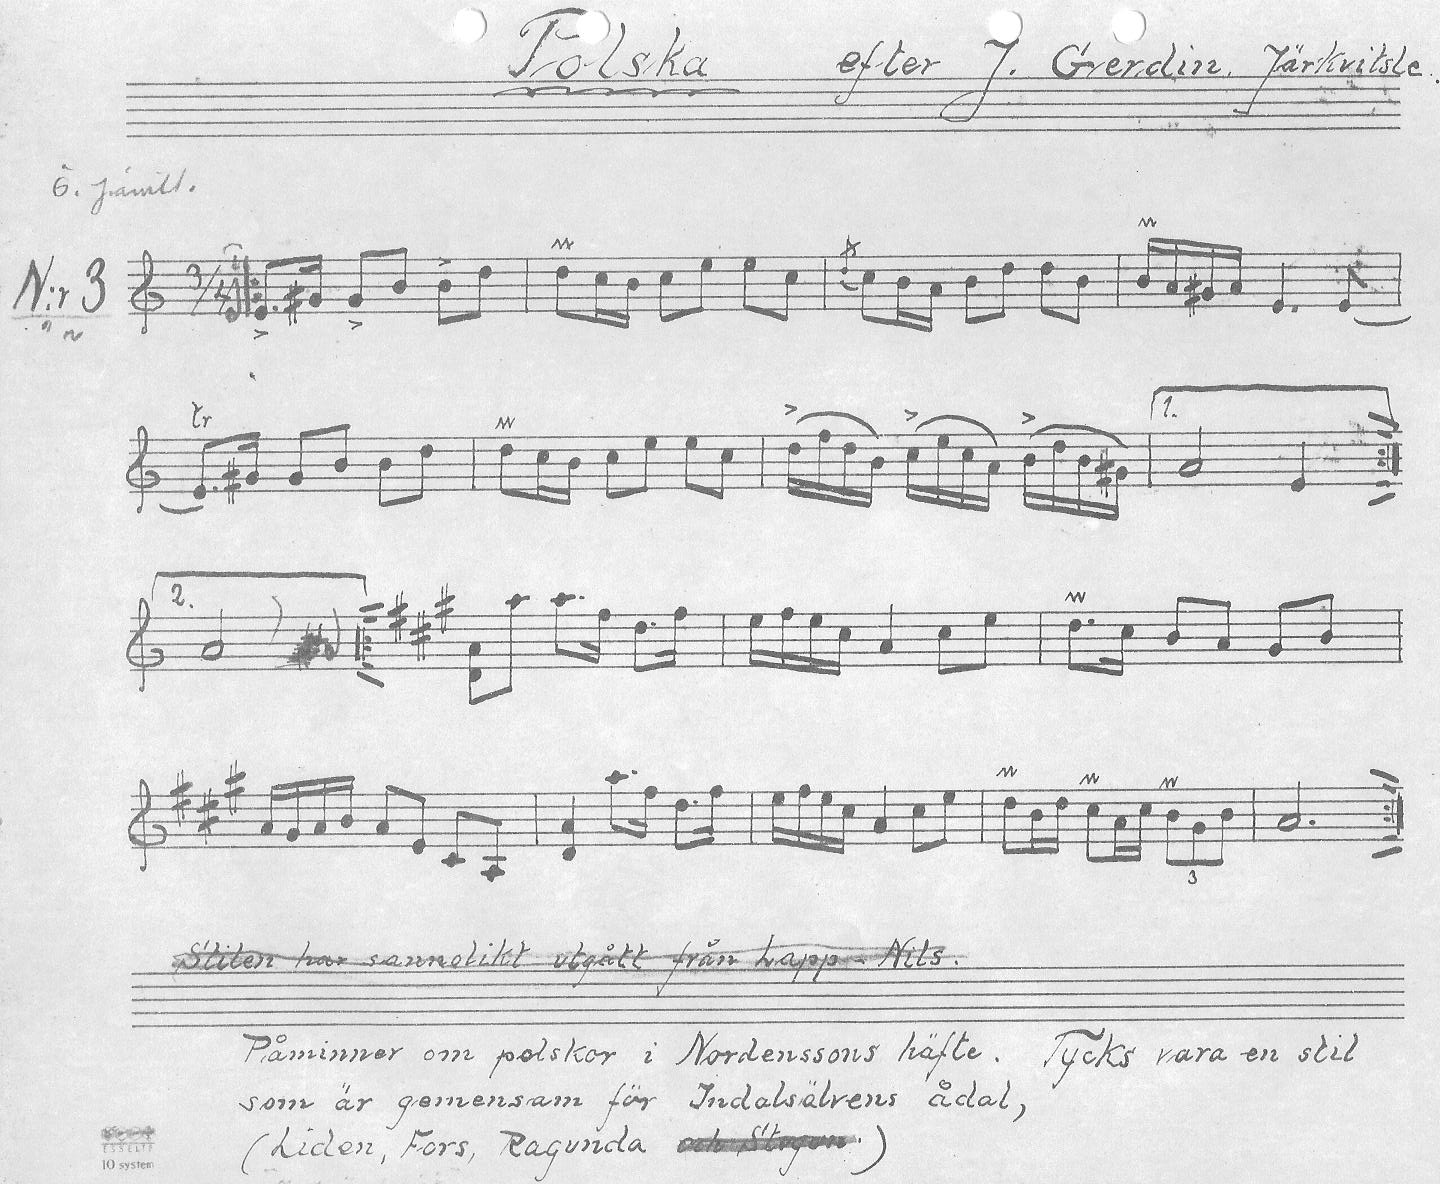 Polska efter J. Gerdin. Järkvitsle.
N:r 3
3/4
tr
1.
2.
3
Stilen har sannolikt utgått från Lapp-Nils.
Påminner om polskor i Nordenssons häfte. Tycks vara en stil
som är gemensam för Indalsälvens ådal,
(Liden, Fors, Ragunda och Stugun.)
ESSELTE
10 system